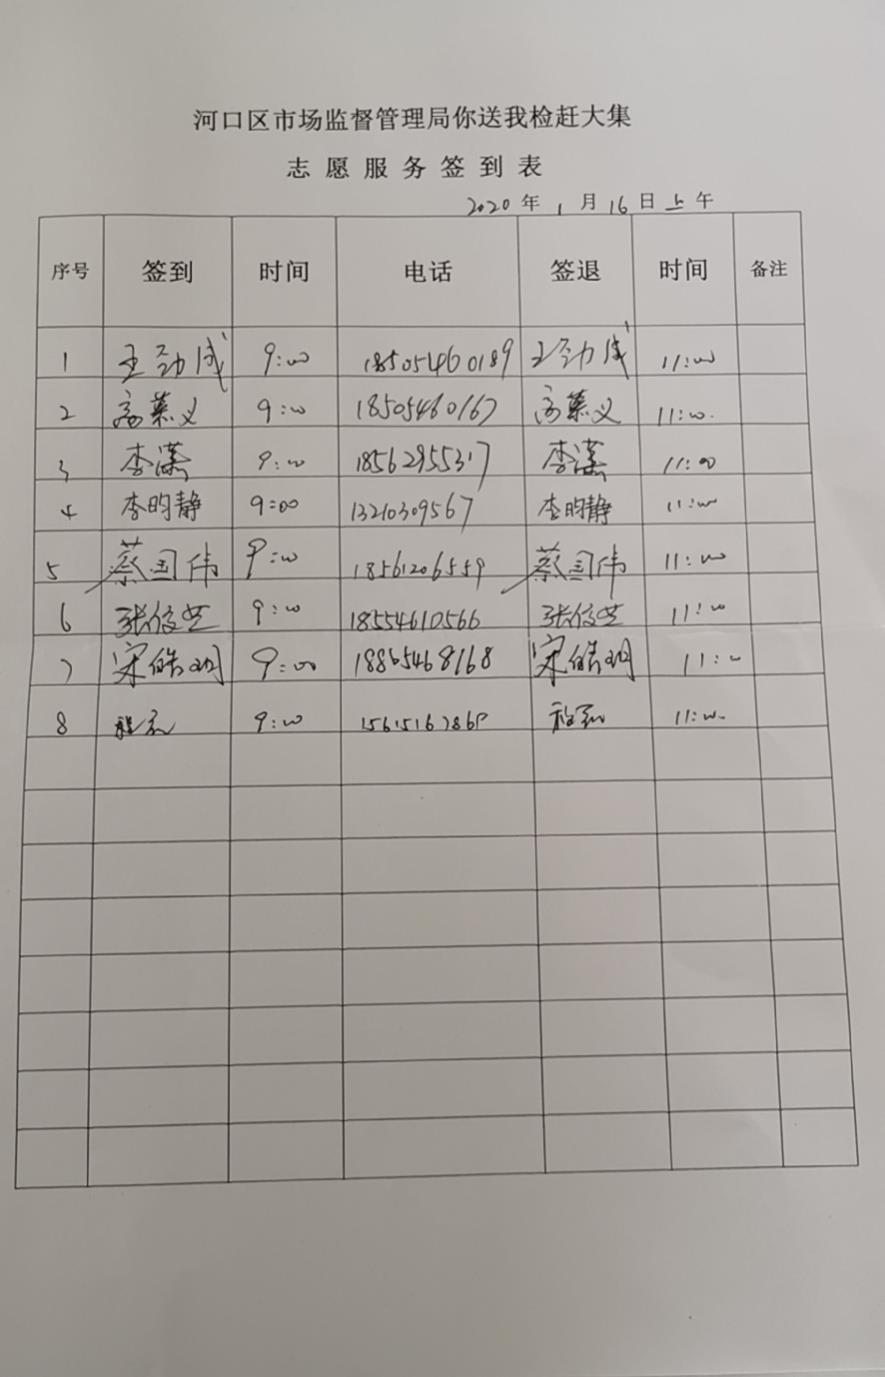 河口区市场监督管理局你送我检赶大集
志愿服务签到表
2020 年 1 月 16 日 上 午
序号 签到 时间 电话 签退 时间 备注
1 王劲成 9:00 18505460189 王劲成 11:00
2 高慕义 9:00 18505460167 高慕义 11:00.
3 李潇 9:00 18562955317 李潇 11:00
4 李昀静 9:00 13210309567 李昀静 11:00
5 蔡国伟 9:00 18561206559 蔡国伟 11:00
6 9:00 18554610566 11:00
7 宋皓玥 9:00 18865468168 宋皓玥 11:00
8 9:00 11:00.